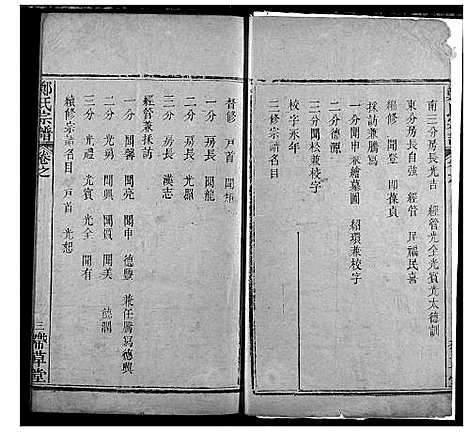 南三分房長光吉 經管光全光賓光太德訓
東分房長自強 經管 民福民喜
繼修 開登 即葆貞
採訪兼騰寫
一分開申兼繪墓圖 紹環兼校字
二分德源
三分開松兼校字
校字永年
二修宗譜名目
督修 戸首 開
一分 房長 開龍
二分 房長 光顯
三分 房長 漢志
經管兼採訪
一分 開馨 開亮 開申 德豐 兼任騰寫德興
二分 光勇 開質 開美 德潤
三分 光禮 光賓 光全 開有
續修宗譜名目 戸首 光恕
鄭氏宗譜 卷之
三 帶草堂